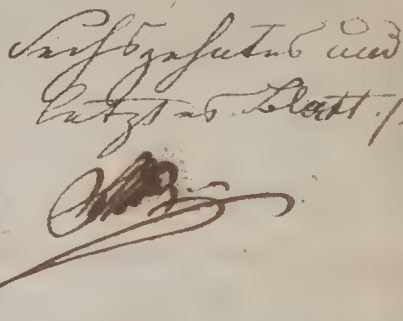 Sechszehntes und
letztes Blatt.